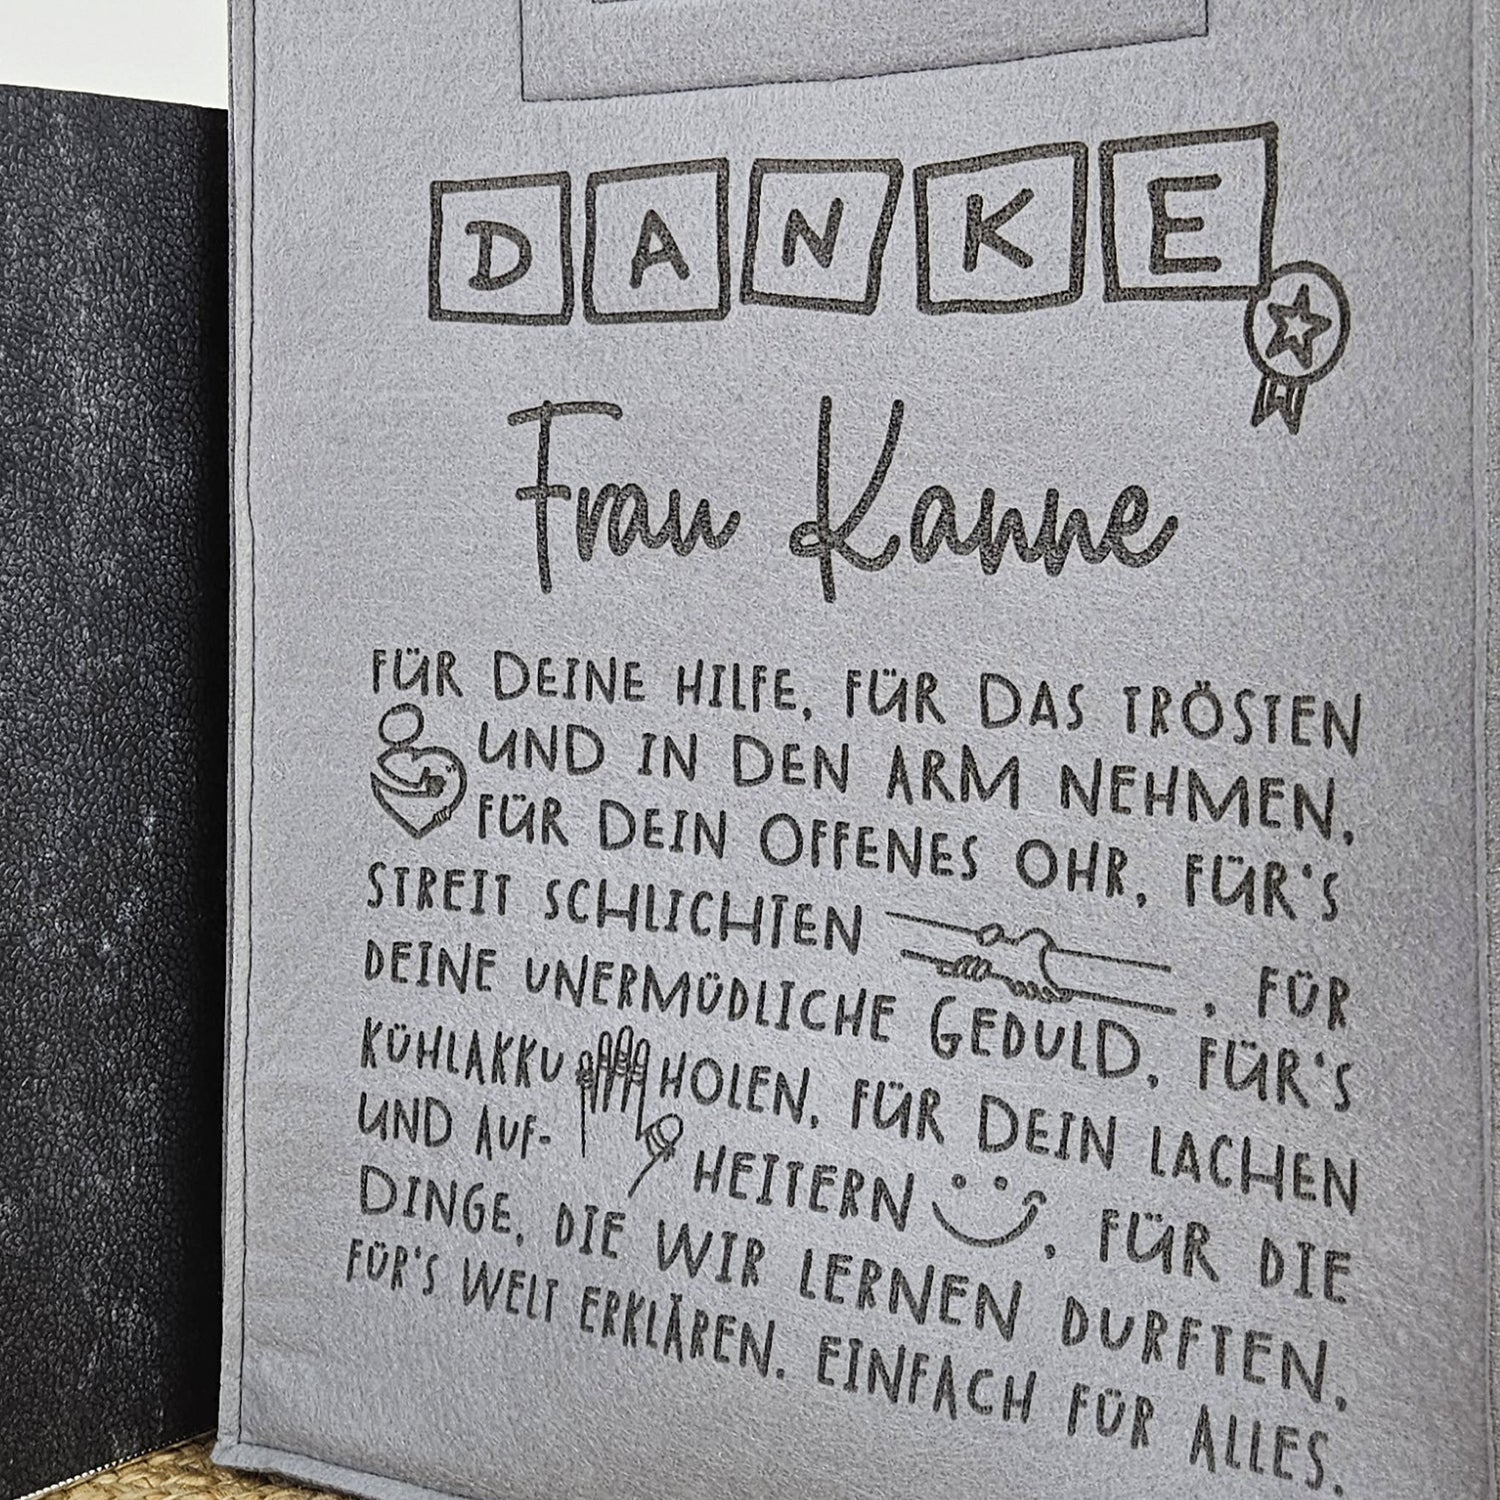 DANKE
Frau Kanne
FÜR DEINE HILFE, FÜR DAS TRÖSTEN
UND IN DEN ARM NEHMEN,
FÜR DEIN OFFENES OHR, FÜR'S
STREIT SCHLICHTEN , FÜR
DEINE UNERMÜDLICHE GEDULD, FÜR'S
KÜHLAKKU HOLEN, FÜR DEIN LACHEN
UND AUF- HEITERN , FÜR DIE
DINGE, DIE WIR LERNEN DURFTEN,
FÜR'S WELT ERKLÄREN. EINFACH FÜR ALLES.